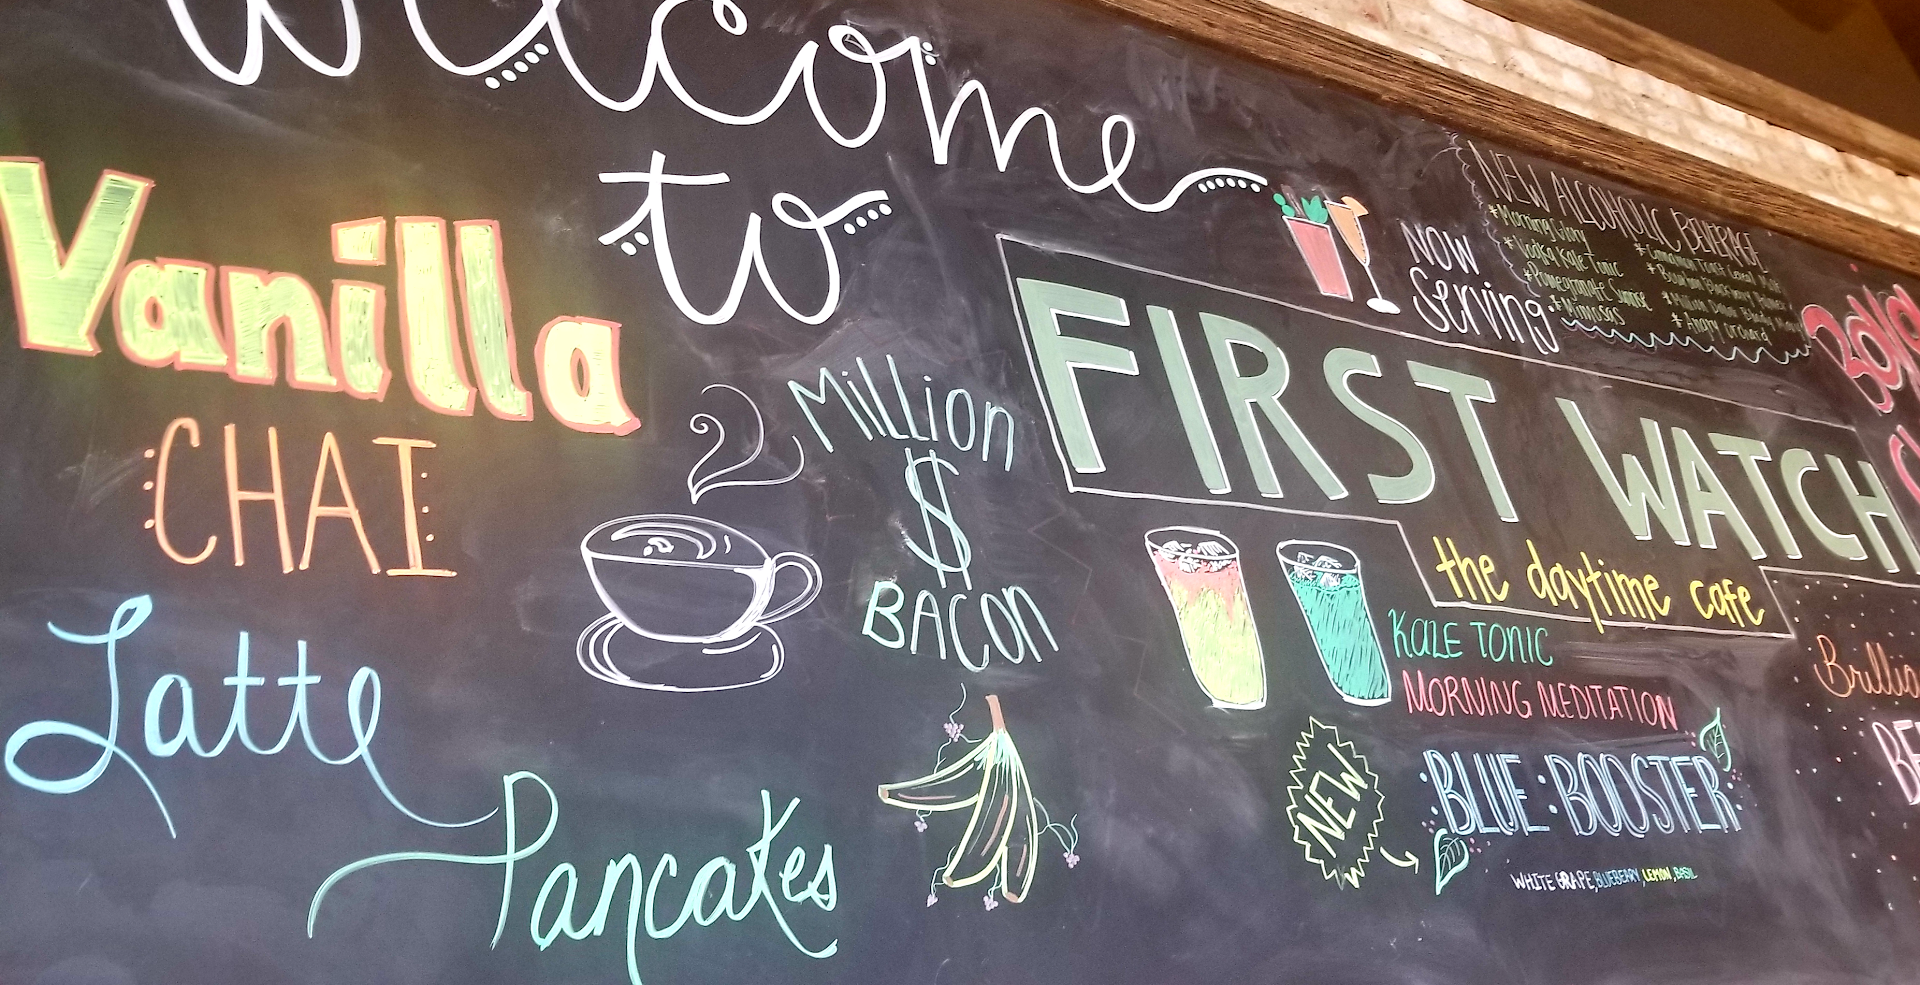 welcome
to
FIRST WATCH
the daytime cafe
Vanilla
CHAI
Latte
Pancakes
Million
$
BACON
NOW
Serving
NEW ALCOHOLIC BEVERAGE
*Morning Glory
*Vodka Kale Tonic
*Pomegranate Sunrise
*Mimosas
*Cinnamon Toast Cereal Milk
*Million Dollar Bloody Mary
*Angry Orchard
KALE TONIC
MORNING MEDITATION
NEW
BLUE BOOSTER
WHITE GRAPE, BLUEBERRY, LEMON, BASIL